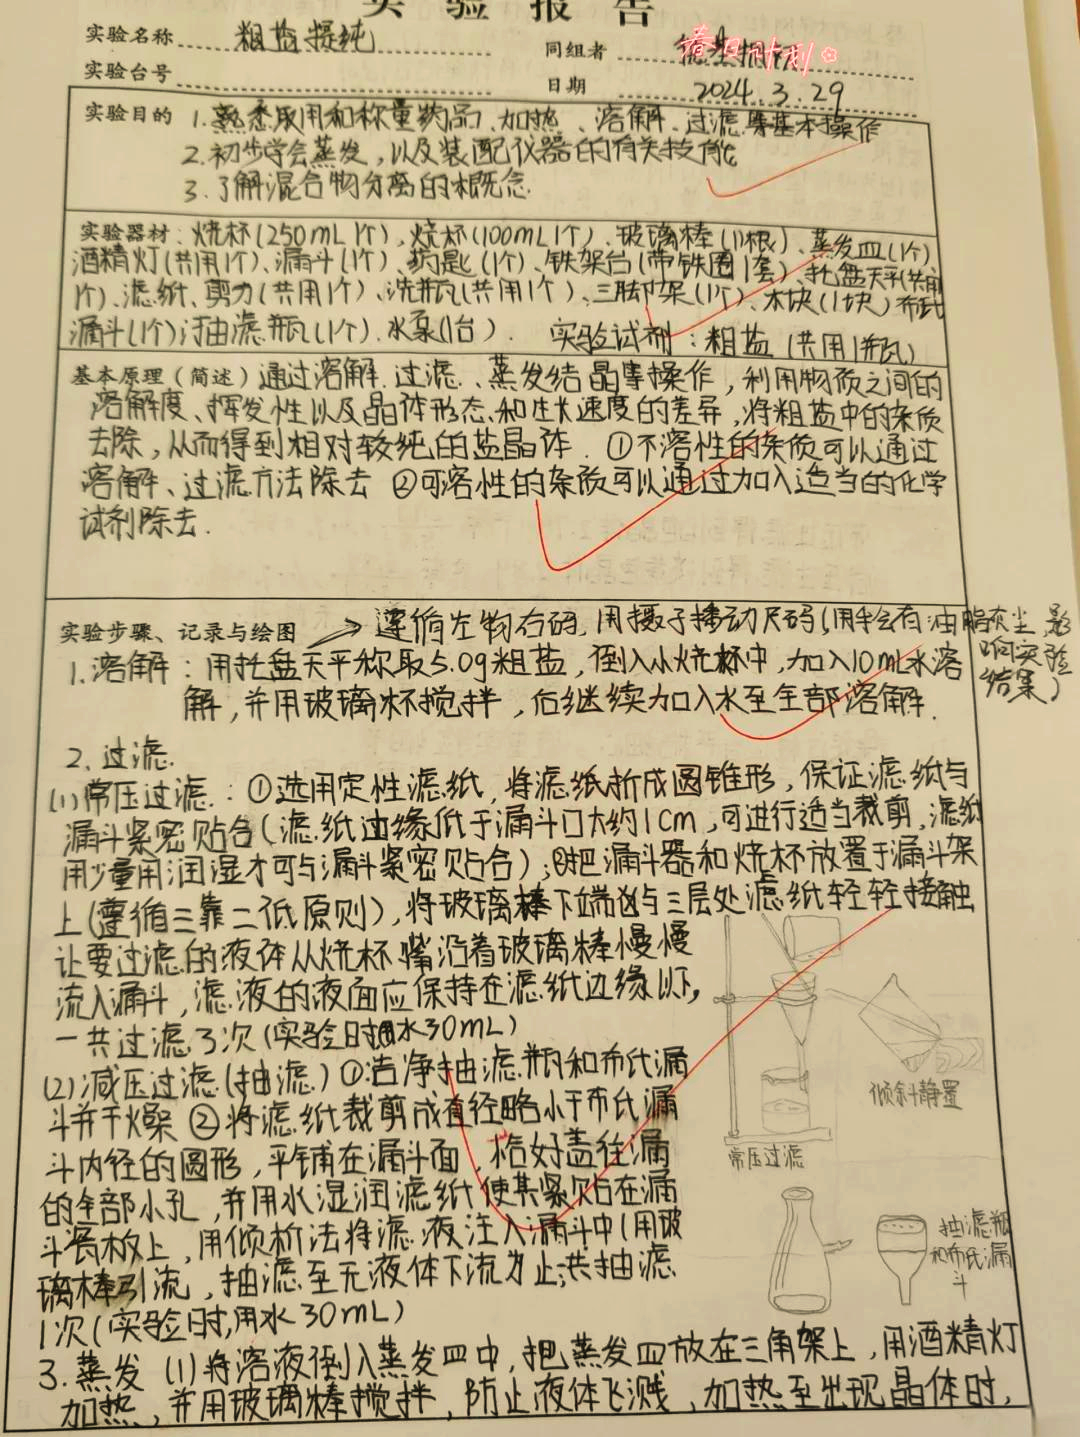 实验报告
实验名称 粗盐提纯 同组者 春日计划
实验台号 日期 2024.3.29
实验目的 1.熟悉取用和称量药品、加热、溶解、过滤等基本操作
2.初步学会蒸发,以及装配仪器的有关技能
3.了解混合物分离的概念.
实验器材:烧杯(250mL1个)、烧杯(100mL1个)、玻璃棒(1根)、蒸发皿(1个)
酒精灯(共用1个)、漏斗(1个)、药匙(1个)、铁架台(带铁圈1套)、托盘天平(共用
1个)、滤纸、剪刀(共用1个)、洗瓶(共用1个)、三脚架(1个)、木块(1块)布氏
漏斗(1个);抽滤瓶(1个).水泵(1台). 实验试剂:粗盐(共用1瓶)
基本原理(简述)通过溶解.过滤、蒸发结晶等操作,利用物质之间的
溶解度、挥发性以及晶体形态和生长速度的差异,将粗盐中的杂质
去除,从而得到相对较纯的盐晶体.①不溶性的杂质可以通过
溶解、过滤方法除去 ②可溶性的杂质可以通过加入适当的化学
试剂除去.
实验步骤、记录与绘图 → 遵循左物右码,用镊子移动尺码(用手会有油脂灰尘影
响实验
结果)
1.溶解:用托盘天平称取5.0g粗盐,倒入小烧杯中,加入10mL水溶
解,并用玻璃杯搅拌,后继续加入水至全部溶解.
2.过滤.
(1)常压过滤.:①选用定性滤纸,将滤纸折成圆锥形,保证滤纸与
漏斗紧密贴合(滤纸边缘低于漏斗口大约1cm,可进行适当裁剪,滤纸
用少量用润湿才可与漏斗紧密贴合);②把漏斗器和烧杯放置于漏斗架
上(遵循三靠二低原则),将玻璃棒下端与三层处滤纸轻轻接触
让要过滤的液体从烧杯嘴沿着玻璃棒慢慢
流入漏斗,滤液的液面应保持在滤纸边缘以下,
一共过滤3次(实验时用水30mL)
(2)减压过滤(抽滤)①洁净抽滤瓶和布氏漏
斗并干燥 ②将滤纸裁剪成直径略小于布氏漏
斗内径的圆形,平铺在漏斗面,恰好盖住漏
的全部小孔,并用水湿润滤纸使其紧贴在漏
斗瓷板上,用倾析法将滤液注入漏斗中(用玻
璃棒引流,抽滤至无液体下流为止;共抽滤
1次(实验时,用水30mL)
倾斜静置
常压过滤
抽滤瓶
和布氏漏
斗
3.蒸发 (1)将溶液倒入蒸发皿中,把蒸发皿放在三角架上,用酒精灯
加热,并用玻璃棒搅拌,防止液体飞溅,加热至出现晶体时,